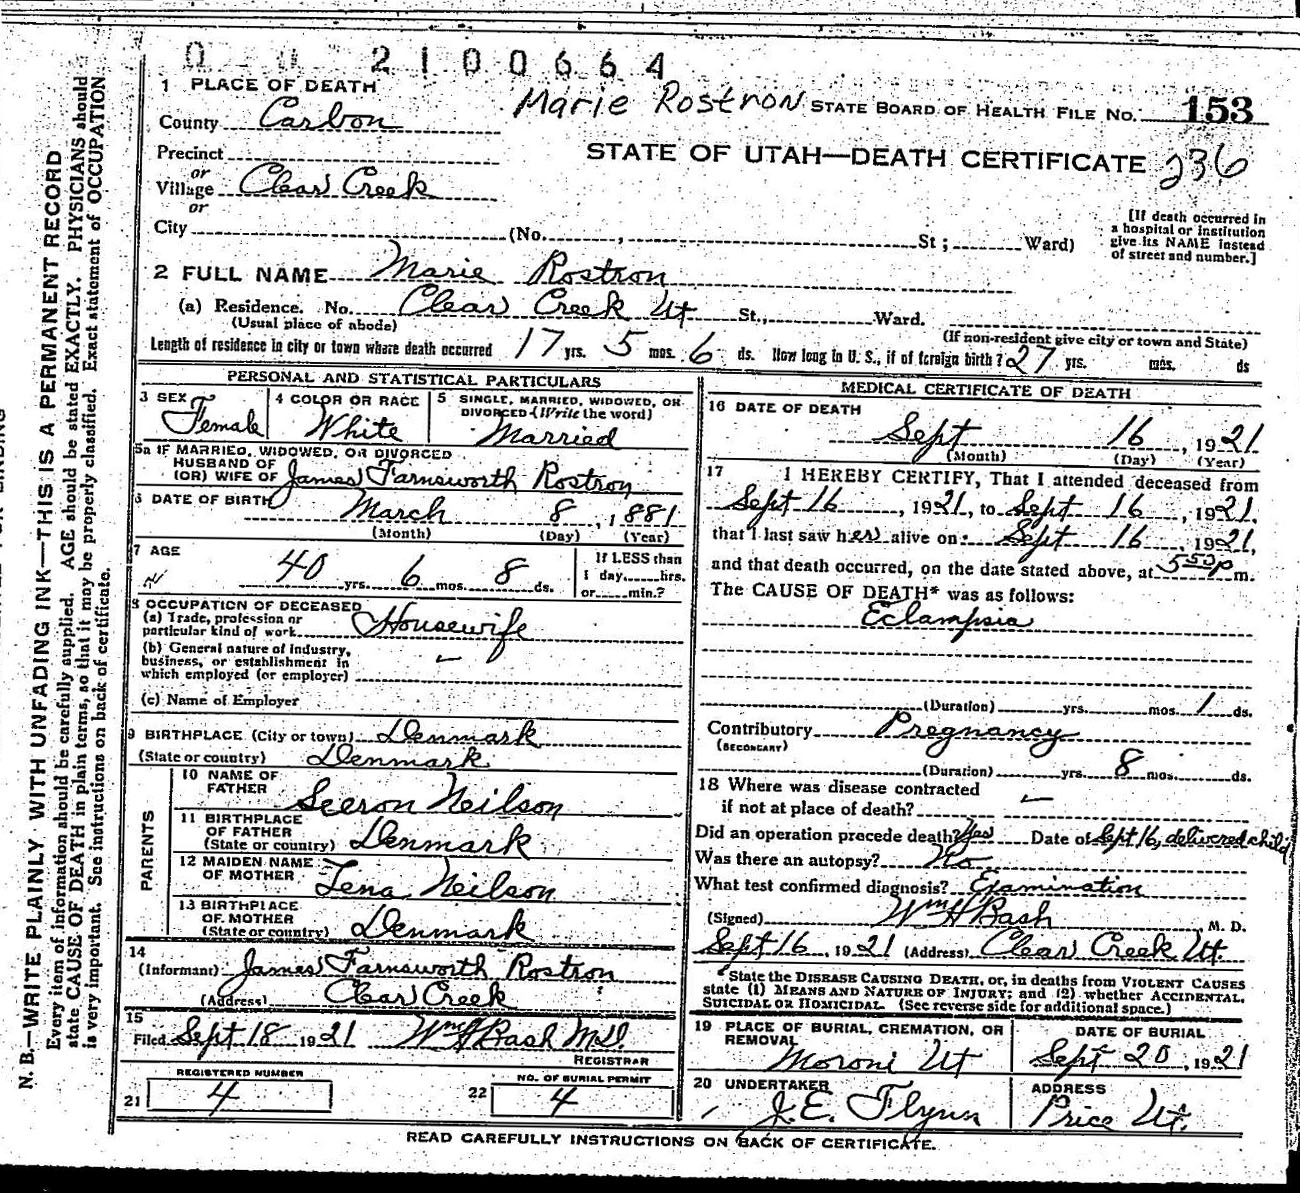 2 1 0 0 6 6 4
1 PLACE OF DEATH
Marie Rostron STATE BOARD OF HEALTH FILE NO. 153
County Carbon
STATE OF UTAH—DEATH CERTIFICATE 236
Precinct
or
Village Clear Creek
or
City (No. , St ; Ward)
[If death occurred in
a hospital or institution
give its NAME instead
of street and number.]
2 FULL NAME Marie Rostron
(a) Residence. No. Clear Creek Ut St., Ward.
(Usual place of abode) (If non-resident give city or town and State)
Length of residence in city or town where death occurred 17 yrs. 5 mos. 6 ds. How long in U. S., if of foreign birth? 27 yrs. mos. ds
PERSONAL AND STATISTICAL PARTICULARS
3 SEX Female
4 COLOR OR RACE White
5 SINGLE, MARRIED, WIDOWED, OR
DIVORCED (Write the word)
Married
5a IF MARRIED, WIDOWED, OR DIVORCED
HUSBAND OF
(OR) WIFE OF James Farnsworth Rostron
6 DATE OF BIRTH March 8, 1881
(Month) (Day) (Year)
7 AGE
40 yrs. 6 mos. 8 ds.
If LESS than
1 day......hrs.
or......min.?
8 OCCUPATION OF DECEASED
(a) Trade, profession or
particular kind of work Housewife
(b) General nature of industry,
business, or establishment in
which employed (or employer)
(c) Name of Employer
9 BIRTHPLACE (City or town) Denmark
(State or country) Denmark
PARENTS
10 NAME OF
FATHER Seeron Neilson
11 BIRTHPLACE
OF FATHER
(State or country) Denmark
12 MAIDEN NAME
OF MOTHER Lena Neilson
13 BIRTHPLACE
OF MOTHER
(State or country) Denmark
14
(Informant) James Farnsworth Rostron
(Address) Clear Creek
15
Filed Sept 18 1921 Wm H Bash M.D.
REGISTRAR
REGISTERED NUMBER
21 4
NO. OF BURIAL PERMIT
22 4
MEDICAL CERTIFICATE OF DEATH
16 DATE OF DEATH
Sept 16, 1921
(Month) (Day) (Year)
17 I HEREBY CERTIFY, That I attended deceased from
Sept 16, 1921, to Sept 16, 1921,
that I last saw her alive on Sept 16, 1921,
and that death occurred, on the date stated above, at 5 50 p m.
The CAUSE OF DEATH* was as follows:
Eclampsia
(Duration) yrs. mos. 1 ds.
Contributory Pregnancy
(SECONDARY)
(Duration) yrs 8 mos. ds.
18 Where was disease contracted
if not at place of death?
Did an operation precede death? Yes Date of Sept 16, delivered child
Was there an autopsy? No
What test confirmed diagnosis? Examination
(Signed) Wm H Bash, M. D.
Sept 16, 1921 (Address) Clear Creek Ut.
*State the DISEASE CAUSING DEATH, or, in deaths from VIOLENT CAUSES
state (1) MEANS AND NATURE OF INJURY; and (2) whether ACCIDENTAL,
SUICIDAL OR HOMICIDAL (See reverse side for additional space.)
19 PLACE OF BURIAL, CREMATION, OR
REMOVAL
Moroni Ut
DATE OF BURIAL
Sept 20, 1921
20 UNDERTAKER
J. E. Flynn
ADDRESS
Price Ut.
READ CAREFULLY INSTRUCTIONS ON BACK OF CERTIFICATE.
N. B.—WRITE PLAINLY WITH UNFADING INK—THIS IS A PERMANENT RECORD
Every item of information should be carefully supplied. AGE should be stated EXACTLY. PHYSICIANS should
state CAUSE OF DEATH in plain terms, so that it may be properly classified. Exact statement of OCCUPATION
is very important. See instructions on back of certificate.